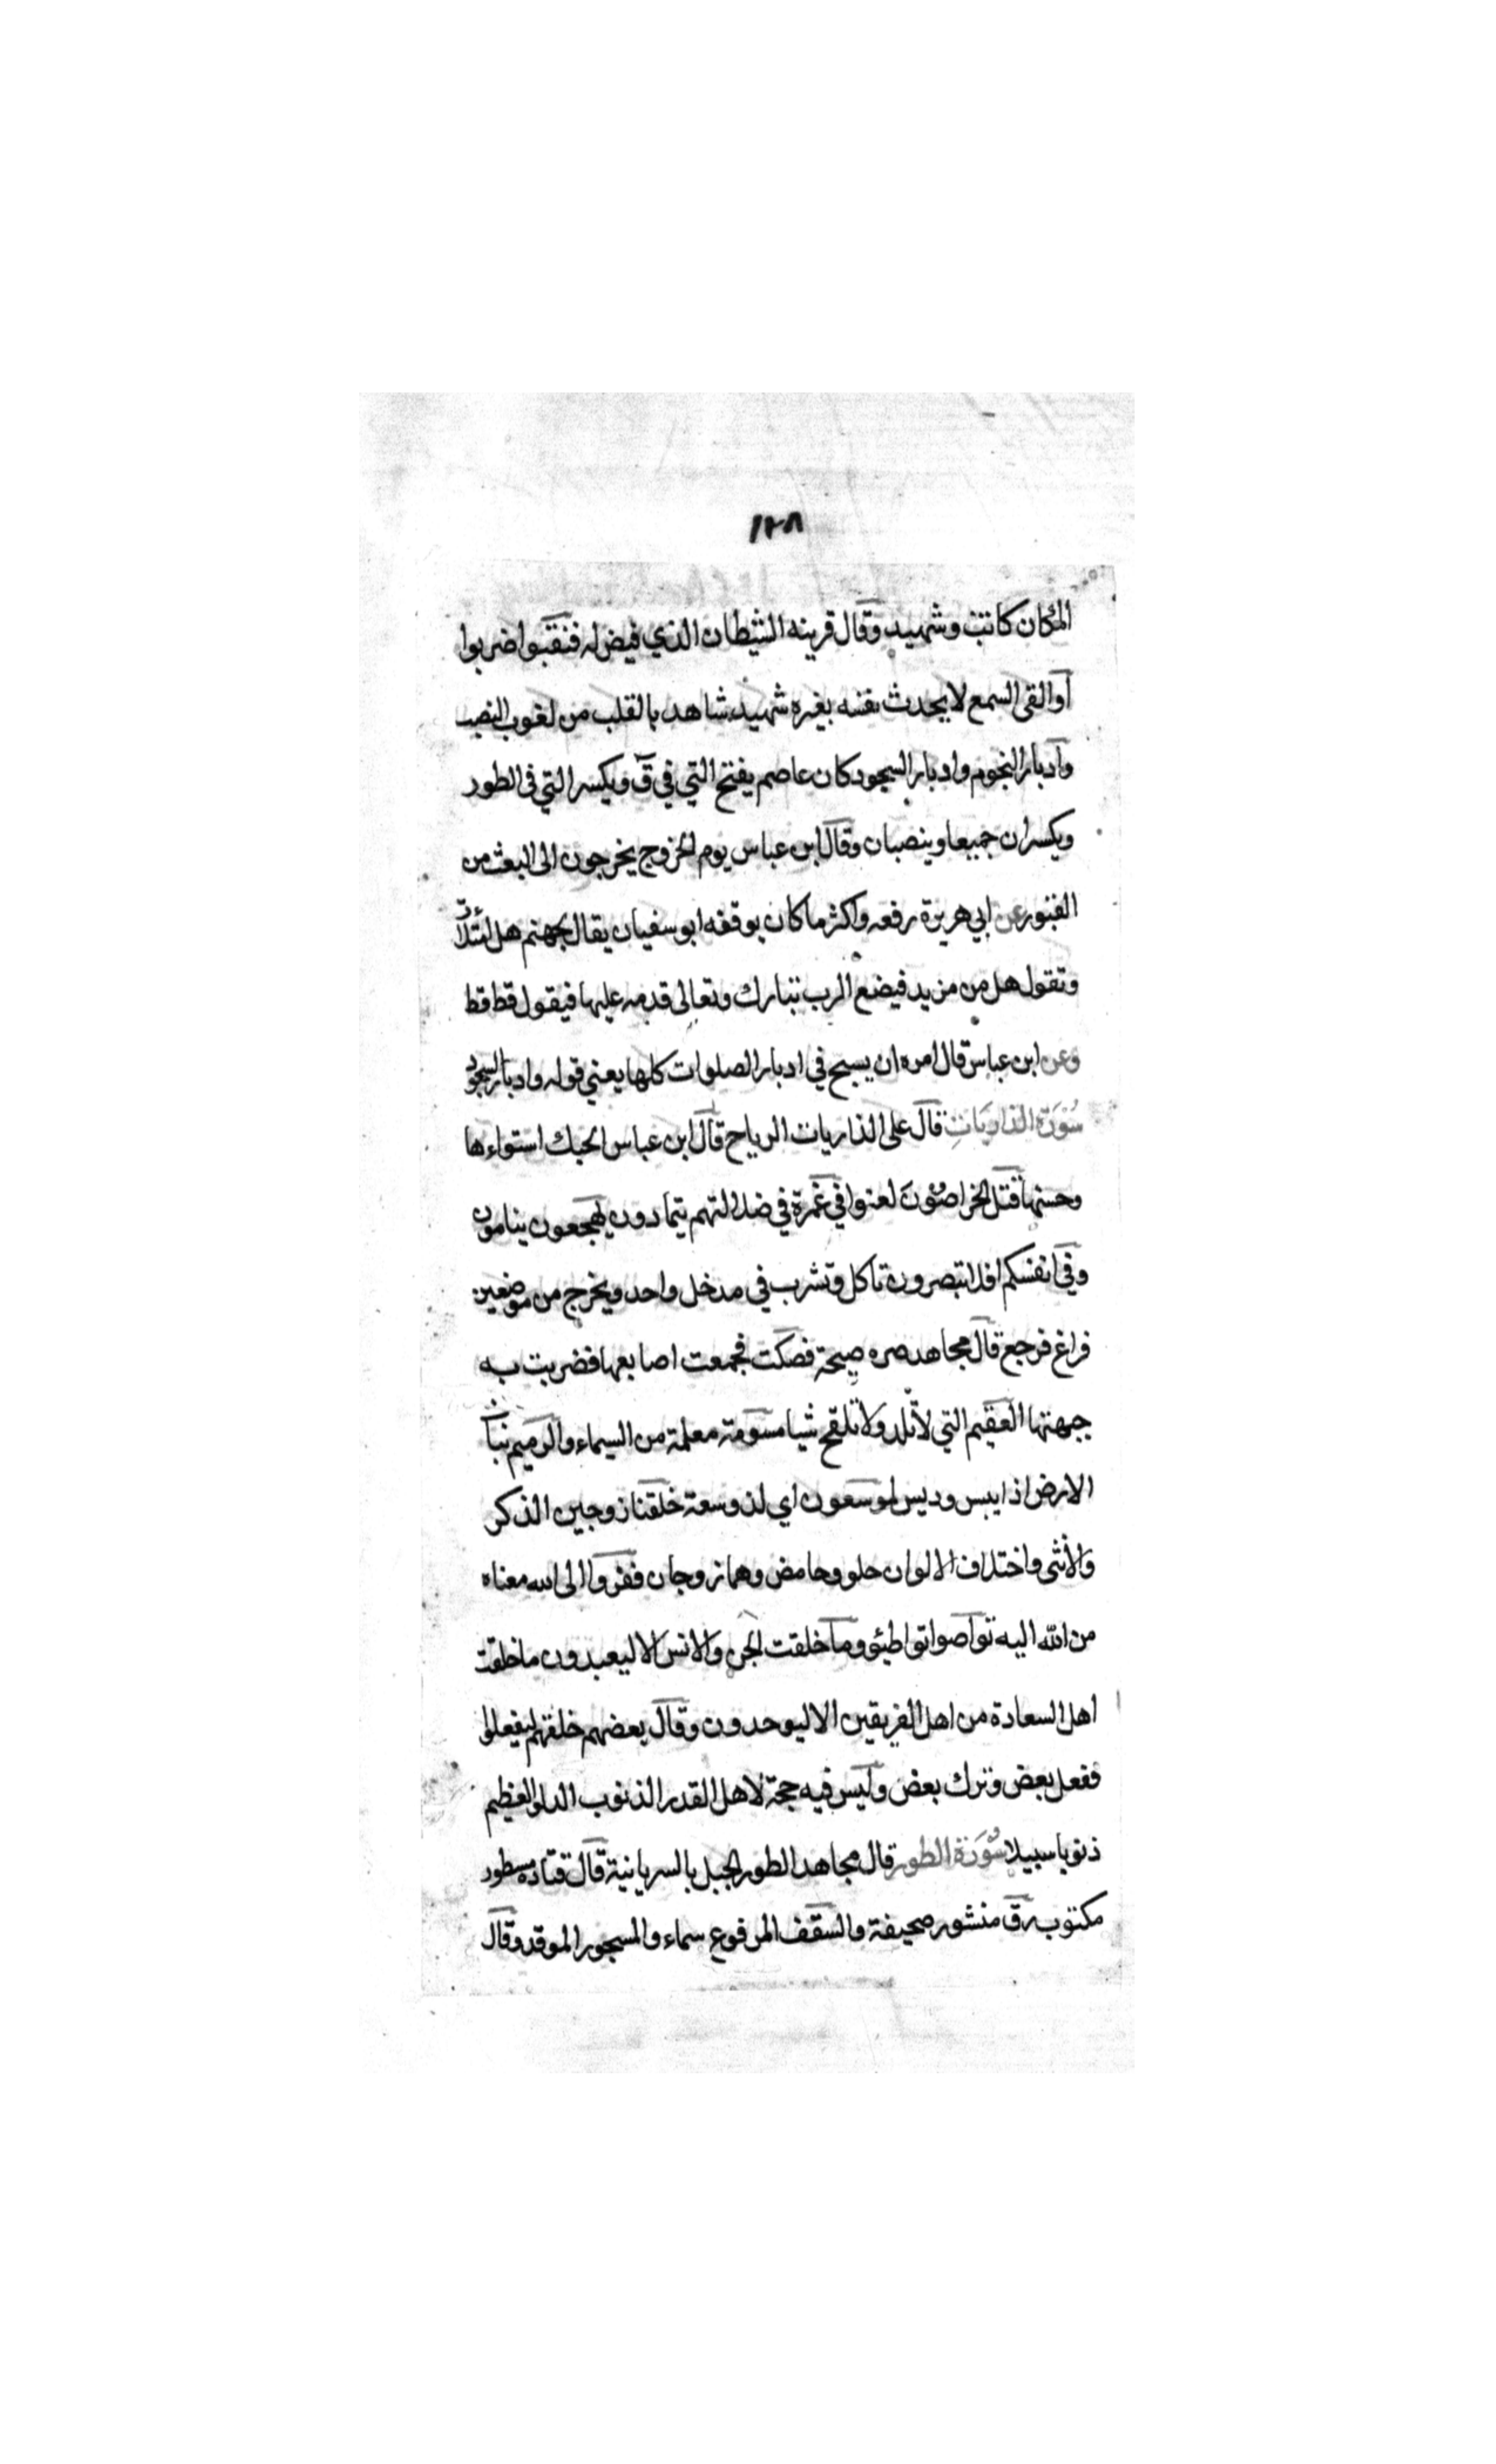 ١٢٨
الملكان كاتب وشهيد وقال قرينه الشيطان الذي قيض له فنقبوا ضربوا
أو القى السمع لا يحدث نفسه بغيره شهيد شاهد بالقلب من لغوب النصب
وادبار النجوم وادبار السجود كان عاصم يفتح التي في ق ويكسر التي في الطور
ويكسران جميعا وينصبان وقال ابن عباس يوم الخروج يخرجون الى البعث من
القبور عن ابي هريرة رفعه واكثر ما كان يوقفه ابو سفيان يقال لجهنم هل امتلأت
وتقول هل من مزيد فيضع الرب تبارك وتعالى قدمه عليها فيقول قط قط
وعن ابن عباس قال امره ان يسبح في ادبار الصلوات كلها يعني قوله وادبار السجود
سُوَرة الذاريَات قال على الذاريات الرياح قال ابن عباس الحبك استواءها
وحسنها قتل الخراصون لعنوا في غمرة في ضلالتهم يتمادون يهجعون ينامون
وفي انفسكم افلا تبصرون تاكل وتشرب في مدخل واحد ويخرج من موضعين
فراغ فرجع قال مجاهد صره صيحة فصكت فجمعت اصابعها فضربت به
جبهتها العقيم التي لا تلد ولا تلقح شيا مسومة معلمة من السيماء والرميم نبات
الارض اذا يبس وديس لموسعون اي لذو سعة خلقنا زوجين الذكر
والأنثى واختلاف الالوان حلو وحامض وهما زوجان ففروا الى الله معناه
من الله اليه تواصوا تواطئو وما خلقت الجن والانس الا ليعبدون ما خلقت
اهل السعادة من اهل الفريقين الا ليوحدون وقال بعضهم خلقهم ليفعلوا
ففعل بعض وترك بعض وليس فيه حجة لاهل القدر الذنوب الدلو العظيم
ذنوبا سبيلا سُوَرة الطور قال مجاهد الطور الجبل بالسريانية قال قتاده مسطور
مكتوب رق منشور صحيفة والسقف المرفوع سماء والمسجور الموقد وقال